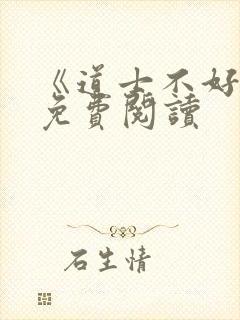 《道士不好
免費閱讀
石生情